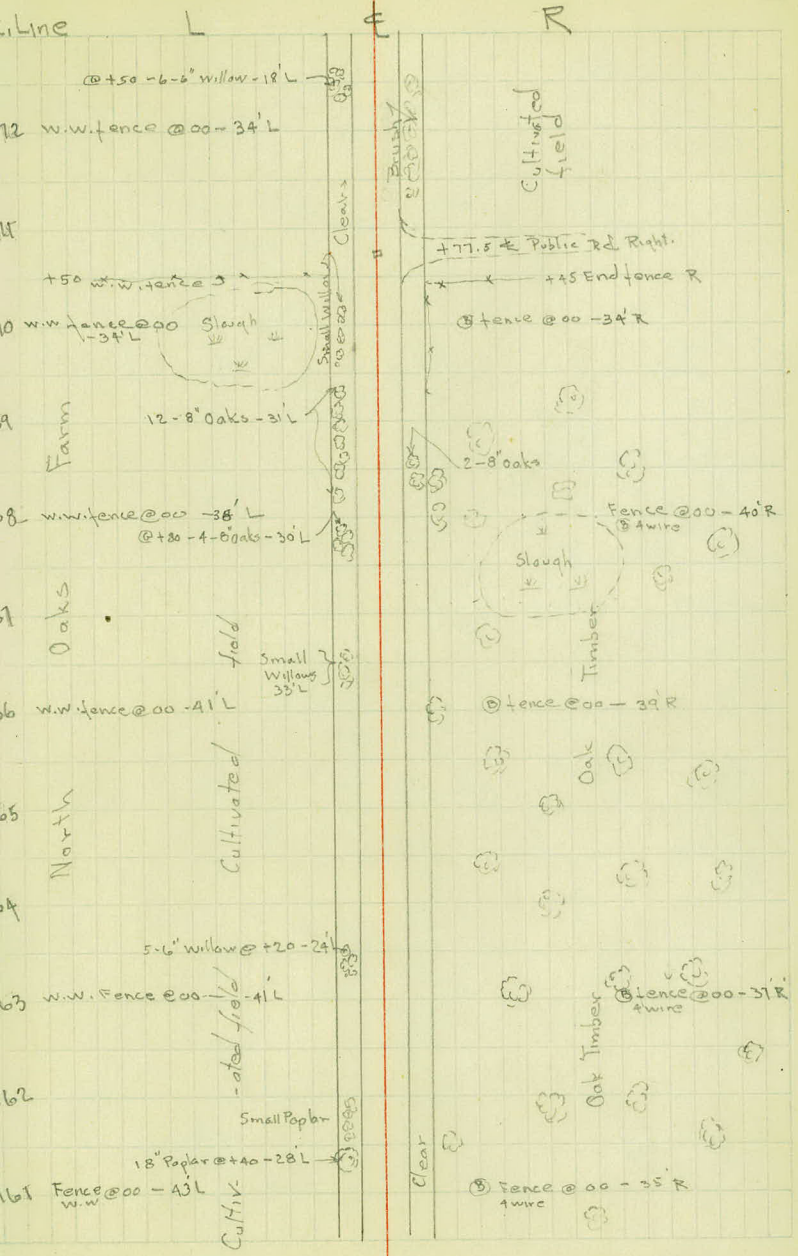 Line L ℄ R
@ +50 - 6-6" Willow - 18' L
Brush
Cultivated
field
72 w.w. fence @ 00 - 34' L
Clear
+77.5 ℄ Public Rd Right.
+50 w.w. fence
+45 End fence R
w.w fence @ 00
- 34' L
Slough
Small Willows
fence @ 00 - 34' R
12 - 8" Oaks - 31' L
2 - 8" oaks
Farm
w.w. fence @ 00 - 38' L
@ +80 - 4 - 8" oaks - 30' L
Fence @ 00 - 40' R
4 wire
Slough
Oaks
field
Small
Willows
33' L
Timber
66 w.w. fence @ 00 - 41' L
fence @ 00 - 39' R
Oak
65
North
Cultivated
64
5-6" Willow @ +20 - 24' L
63 w.w. Fence @ 00 - 41' L
fence @ 00 - 37' R
4 wire
-ated field
Oak Timber
62
Small Poplar
18" Poplar @ +40 - 28' L
Clear
61 Fence @ 00 - 43' L
w.w
Fence @ 00 - 35' R
4 wire
Cultiv